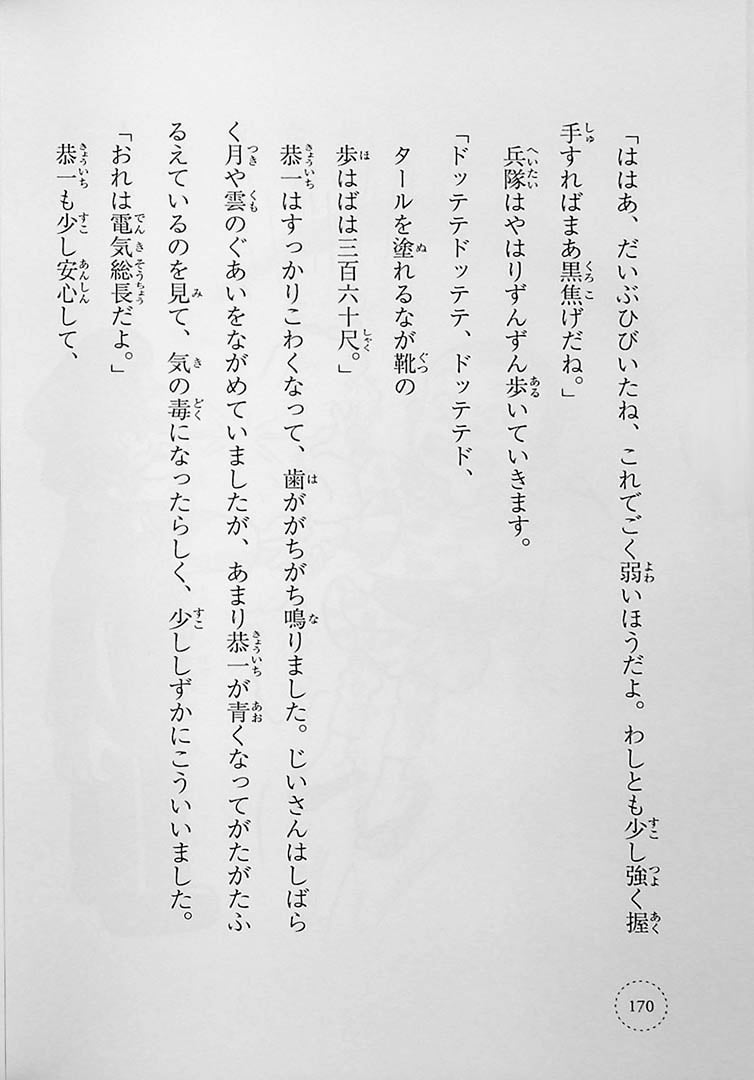 「ははあ、だいぶひびいたね、これでごく弱いほうだよ。わしとも少し強く握
手すればまあ黒焦げだね。」
兵隊はやはりずんずん歩いていきます。
「ドッテテドッテテ、ドッテテド、
タールを塗れるなが靴の
歩はばは三百六十尺。」
恭一はすっかりこわくなって、歯ががちがち鳴りました。じいさんはしばら
く月や雲のぐあいをながめていましたが、あまり恭一が青くなってがたがたふ
るえているのを見て、気の毒になったらしく、少ししずかにこういいました。
「おれは電気総長だよ。」
恭一も少し安心して、
170